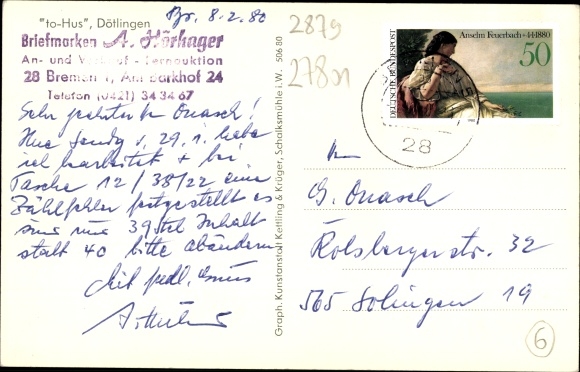 "to-Hus", Dötlingen
Br, 8.2.80
Briefmarken A. Hörhager
An- und Verkauf - Fernauktion
28 Bremen 1, Am Barkhof 24
Telefon (0421) 34 34 67
Sehr geehrter Onasch!
Ihre Sendg v. 29.1. habe
ich bearbeitet + bei
Tasche 12/38/22 einen
Zählfehler festgestellt es
sind nur 39 Inhalt
statt 40 bitte abändern
Mit frdl. Gruss
2879
Graph. Kunstanstalt Kettling & Krüger, Schalksmühle i. W. 506 80
DEUTSCHE BUNDESPOST
Anselm Feuerbach · 4.1.1880
50
28
G. Onasch
Rolsbergerstr. 32
565 Solingen 19
6